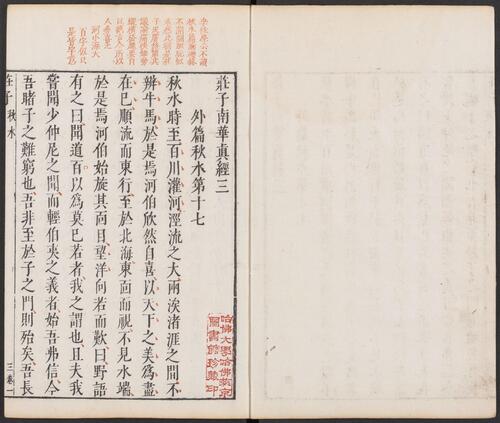 莊子南華真經三
外篇秋水第十七
秋水時至百川灌河涇流之大兩涘渚涯之間不
辨牛馬於是焉河伯欣然自喜以天下之美為盡
在已順流而東行至於北海東面而視不見水端
於是焉河伯始旋其面目望洋向若而歎曰野語
有之曰聞道百以為莫已若者我之謂也且夫我
嘗聞少仲尼之聞而輕伯夷之義者始吾弗信今
吾睹子之難窮也吾非至於子之門則殆矣吾長
莊子 秋水
三卷 一
哈佛大學哈佛燕京
圖書館珍藏印